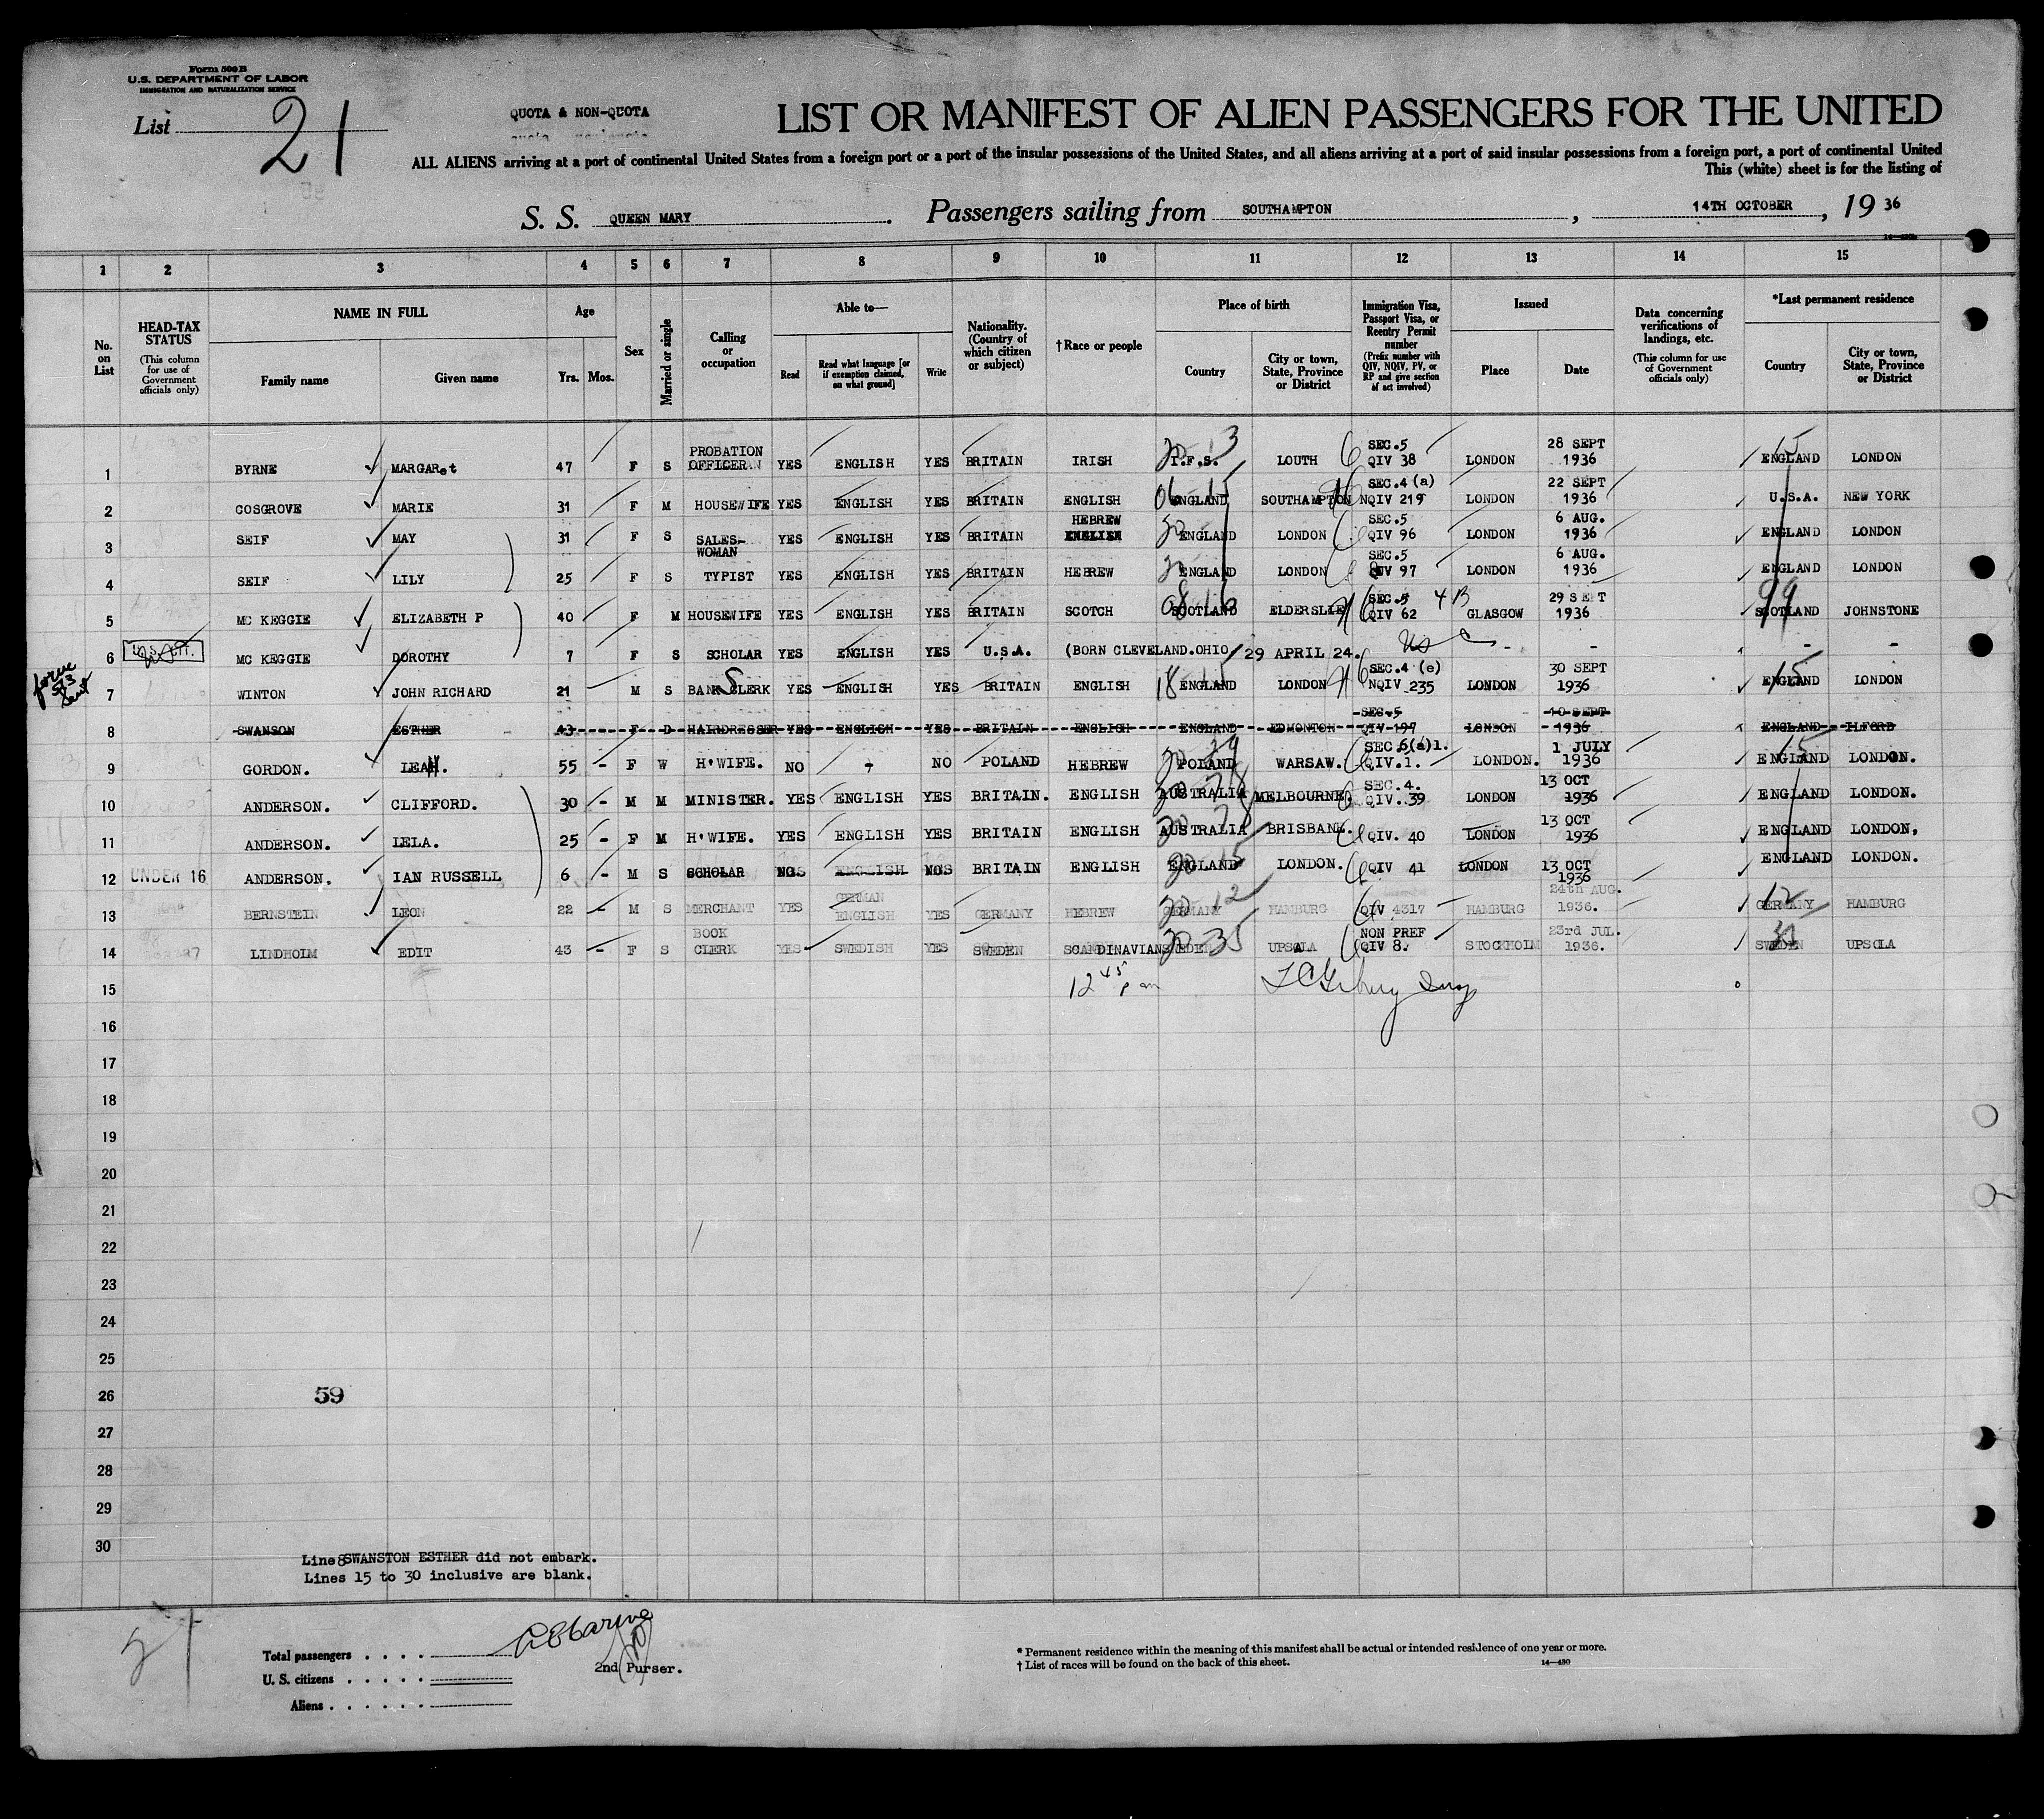 Form 500 B
U.S. DEPARTMENT OF LABOR
IMMIGRATION AND NATURALIZATION SERVICE
List 21
QUOTA & NON-QUOTA
LIST OR MANIFEST OF ALIEN PASSENGERS FOR THE UNITED
ALL ALIENS arriving at a port of continental United States from a foreign port or a port of the insular possessions of the United States, and all aliens arriving at a port of said insular possessions from a foreign port, a port of continental United
This (white) sheet is for the listing of
S. S. QUEEN MARY. Passengers sailing from SOUTHAMPTON, 14TH OCTOBER, 19 36
1 2 3 4 5 6 7 8 9 10 11 12 13 14 15
No. on List
HEAD-TAX STATUS
(This column for use of Government officials only)
NAME IN FULL
Family name
Given name
Age
Yrs. Mos.
Sex
Married or single
Calling or occupation
Able to—
Read
Read what language [or if exemption claimed, on what ground]
Write
Nationality. (Country of which citizen or subject)
†Race or people
Place of birth
Country
City or town, State, Province or District
Immigration Visa, Passport Visa, or Reentry Permit number
(Prefix number with QIV, NQIV, PV, or RP and give section of act involved)
Issued
Place
Date
Data concerning verifications of landings, etc.
(This column for use of Government officials only)
*Last permanent residence
Country
City or town, State, Province or District
1 BYRNE MARGARet 47 F S PROBATION OFFICER YES ENGLISH YES BRITAIN IRISH I.F.S. LOUTH SEC.5 QIV 38 LONDON 28 SEPT 1936 ENGLAND LONDON
2 COSGROVE MARIE 31 F M HOUSEWIFE YES ENGLISH YES BRITAIN ENGLISH ENGLAND SOUTHAMPTON SEC.4 (a) NQIV 219 LONDON 22 SEPT 1936 U.S.A. NEW YORK
3 SEIF MAY 31 F S SALES-WOMAN YES ENGLISH YES BRITAIN HEBREW ENGLISH ENGLAND LONDON SEC.5 QIV 96 LONDON 6 AUG. 1936 ENGLAND LONDON
4 SEIF LILY 25 F S TYPIST YES ENGLISH YES BRITAIN HEBREW ENGLAND LONDON SEC.5 QIV 97 LONDON 6 AUG. 1936 ENGLAND LONDON
5 MC KEGGIE ELIZABETH P 40 F M HOUSEWIFE YES ENGLISH YES BRITAIN SCOTCH SCOTLAND ELDERSLIE SEC.5 4B QIV 62 GLASGOW 29 SEPT 1936 SCOTLAND JOHNSTONE
6 MC KEGGIE DOROTHY 7 F S SCHOLAR YES ENGLISH YES U.S.A. (BORN CLEVELAND.OHIO 29 APRIL 24. - - - -
7 WINTON JOHN RICHARD 21 M S BANK CLERK YES ENGLISH YES BRITAIN ENGLISH ENGLAND LONDON SEC.4 (e) NQIV 235 LONDON 30 SEPT 1936 ENGLAND LONDON
8 SWANSON ESTHER 43 F D HAIRDRESSER YES ENGLISH YES BRITAIN ENGLISH ENGLAND EDMONTON SEC.5 QIV 197 LONDON 10 SEPT 1936 ENGLAND ILFORD
9 GORDON. LEAH. 55 - F W H'WIFE. NO - NO POLAND HEBREW POLAND WARSAW. SEC.6(a)1. QIV.1. LONDON. 1 JULY 1936 ENGLAND LONDON.
10 ANDERSON. CLIFFORD. 30 - M M MINISTER. YES ENGLISH YES BRITAIN. ENGLISH AUSTRALIA MELBOURNE SEC.4. QIV. 39 LONDON 13 OCT 1936 ENGLAND LONDON.
11 ANDERSON. LELA. 25 - F M H'WIFE. YES ENGLISH YES BRITAIN ENGLISH AUSTRALIA BRISBANE. QIV. 40 LONDON 13 OCT 1936 ENGLAND LONDON,
12 UNDER 16 ANDERSON. IAN RUSSELL 6 - M S SCHOLAR NO ENGLISH NO BRITAIN ENGLISH ENGLAND LONDON. QIV 41 LONDON 13 OCT 1936 ENGLAND LONDON.
13 BERNSTEIN LEON 22 - M S MERCHANT YES GERMAN ENGLISH YES GERMANY HEBREW GERMANY HAMBURG QIV 4317 HAMBURG 24th AUG. 1936. GERMANY HAMBURG
14 LINDHOLM EDIT 43 - F S BOOK CLERK YES SWEDISH YES SWEDEN SCANDINAVIAN SWEDEN UPSALA NON PREF QIV 8. STOCKHOLM 23rd JUL. 1936. SWEDEN UPSCLA
15 12 45 pm
16
17
18
19
20
21
22
23
24
25
26 59
27
28
29
30
Line 8 SWANSTON ESTHER did not embark.
Lines 15 to 30 inclusive are blank.
21
Total passengers
U. S. citizens
Aliens
2nd Purser.
* Permanent residence within the meaning of this manifest shall be actual or intended residence of one year or more.
† List of races will be found on the back of this sheet.
14—430